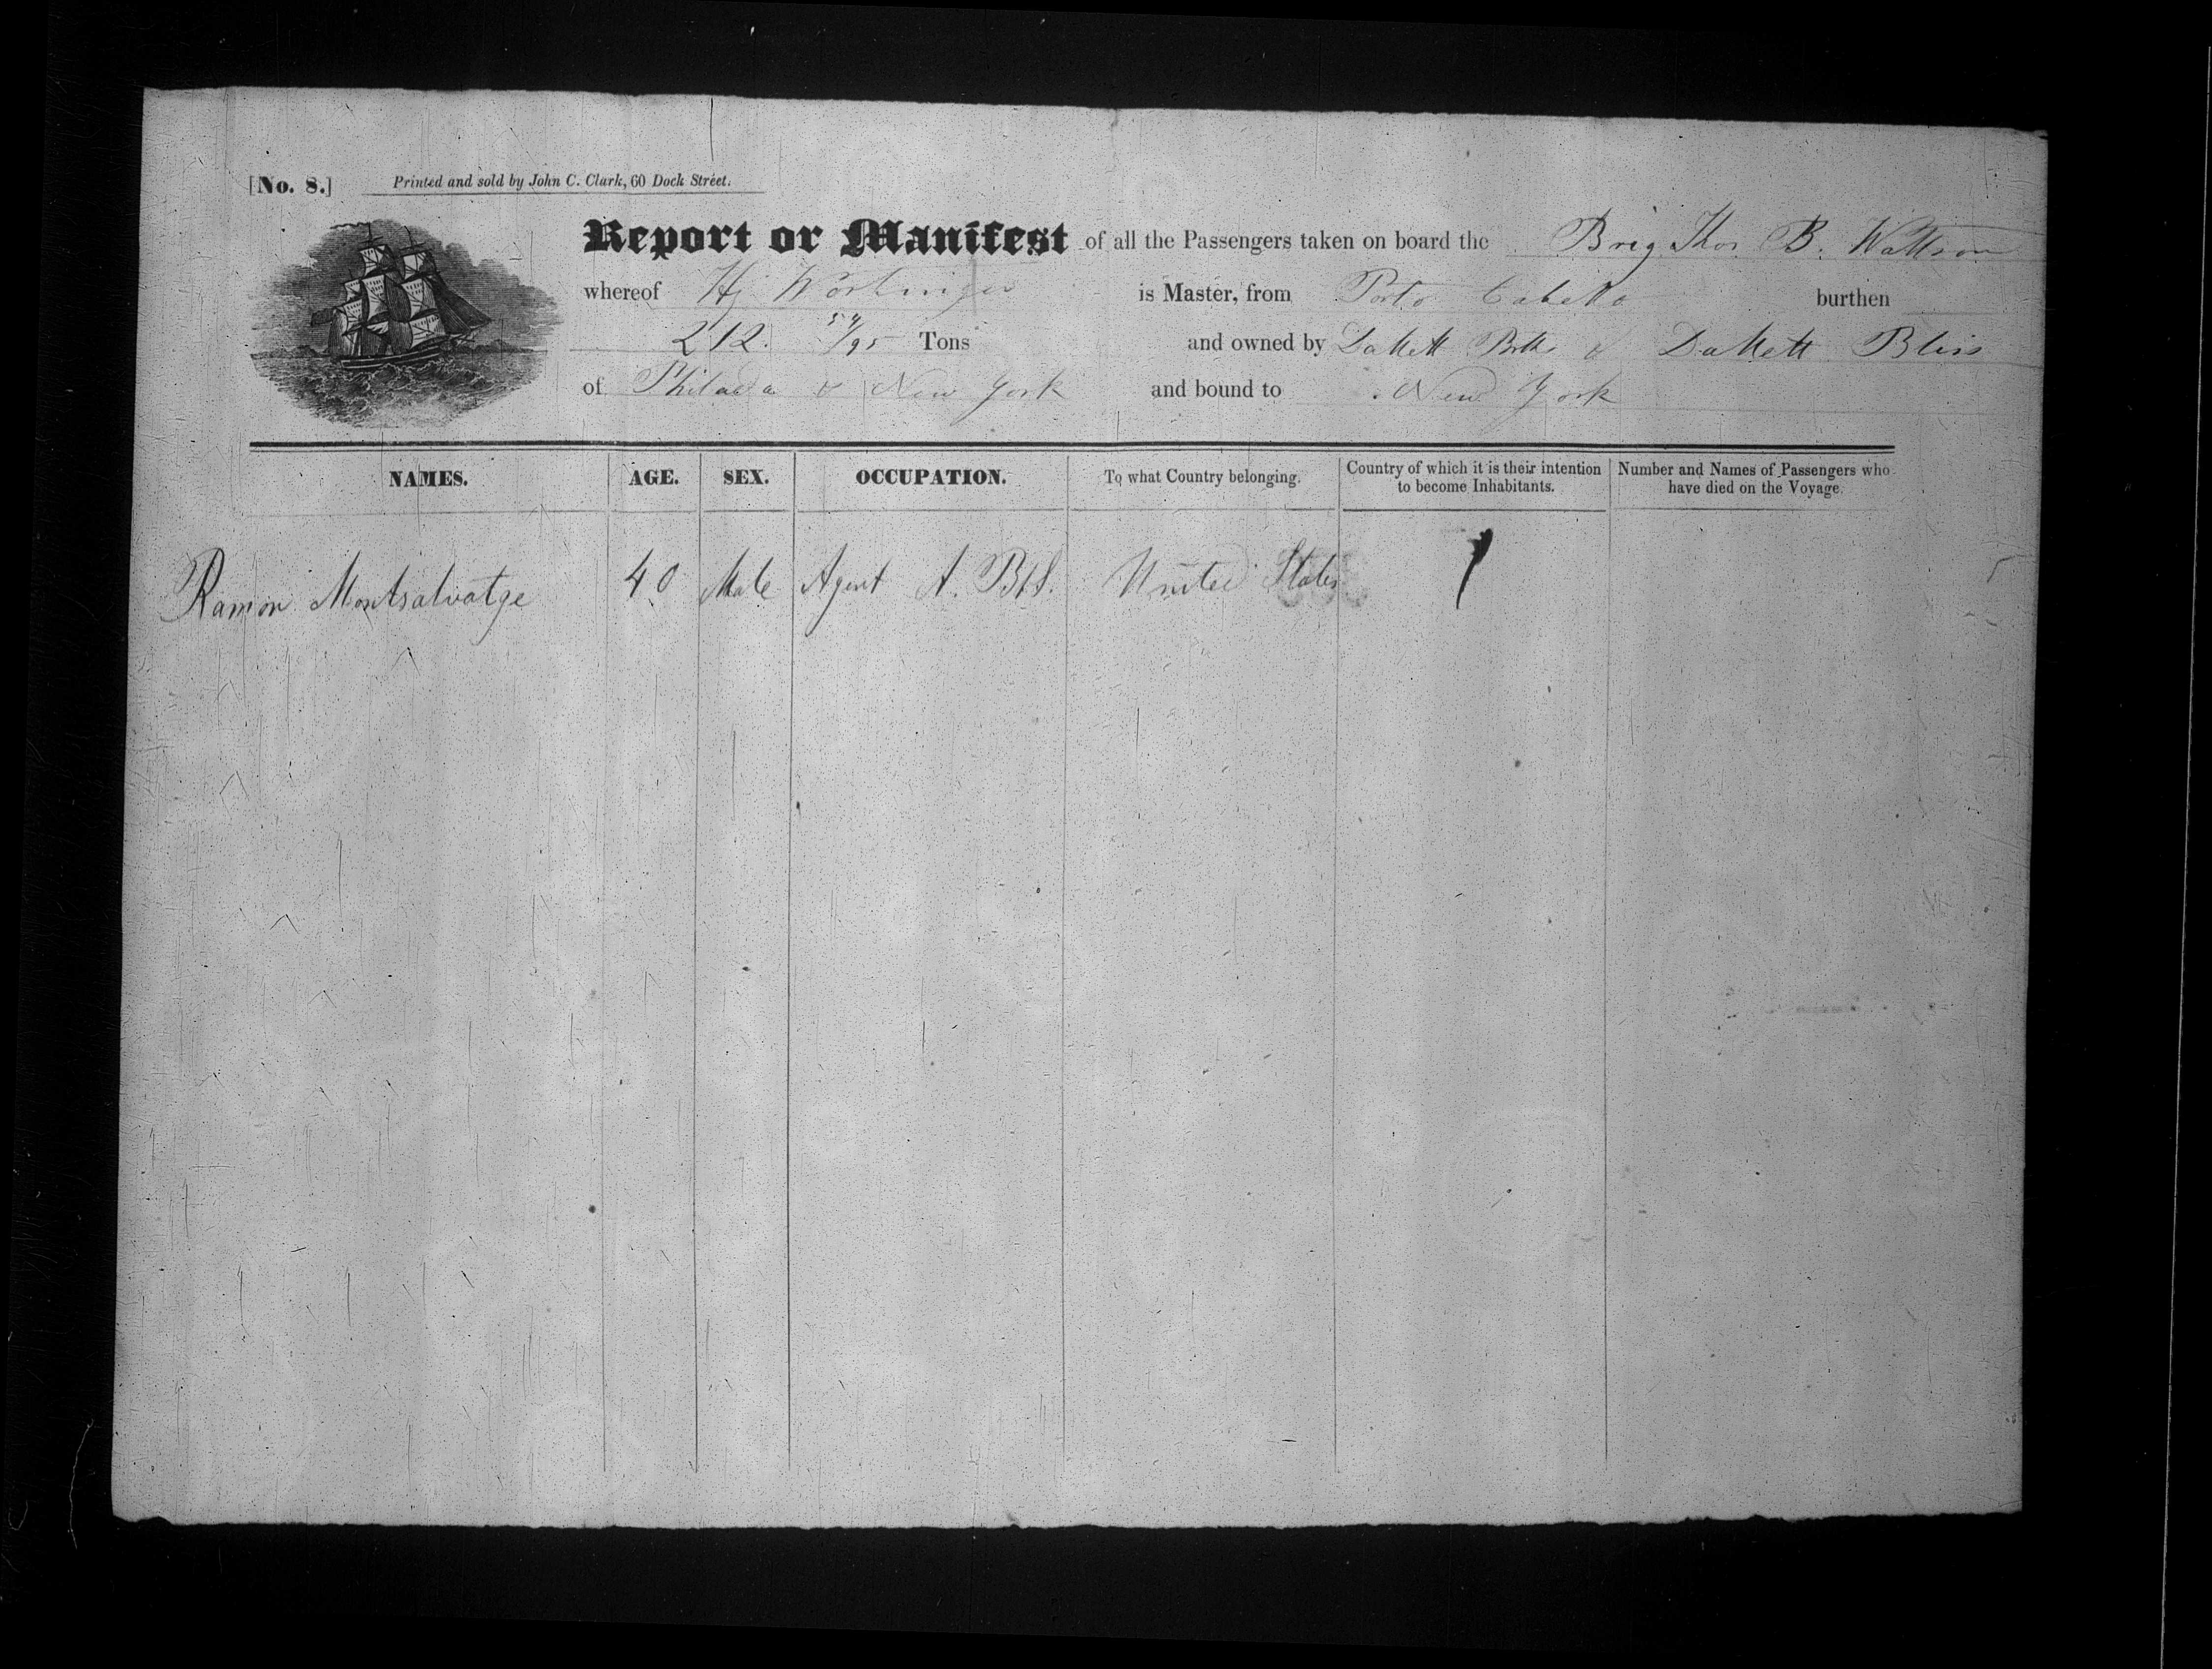 [No. 8.] Printed and sold by John C. Clark, 60 Dock Street.
Report or Manifest of all the Passengers taken on board the Brig Thos B. Wattson
whereof is Master, from Porto Cabello burthen
212. 54/95 Tons and owned by Dallett Broths & Dallett Bliss
of Philada & New York and bound to New York
NAMES. AGE. SEX. OCCUPATION. To what Country belonging. Country of which it is their intention to become Inhabitants. Number and Names of Passengers who have died on the Voyage.
Ramon Montsalvatge 40 Male Agent A. B. S. United States